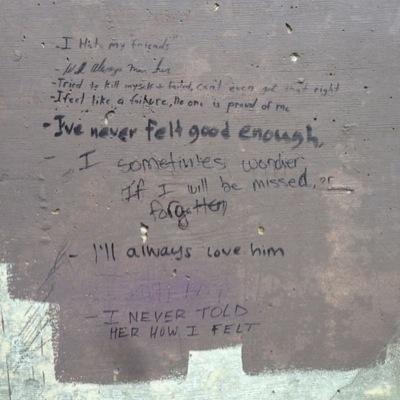 - I Hate my friends
- will always miss her
- Tried to kill myself & failed, can't even get that right
- I feel like a failure, No one is proud of me
- I've never felt good enough,
- I sometimes wonder
If I will be missed, or
forgotten
- I'll always love him
- I NEVER TOLD
HER HOW I FELT